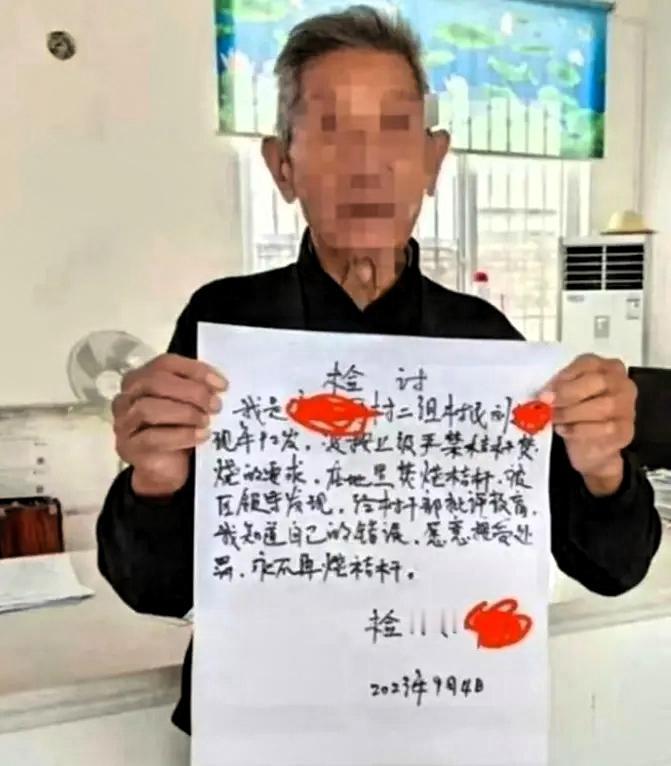 检讨
我是村二组村民刘
现年92岁，没按上级严禁秸秆焚
烧的要求，在地里焚烧秸秆，被
区领导发现，给村干部批评教育，
我知道自己的错误，愿意接受处
罚，永不再烧秸秆。
检
2023年9月4日